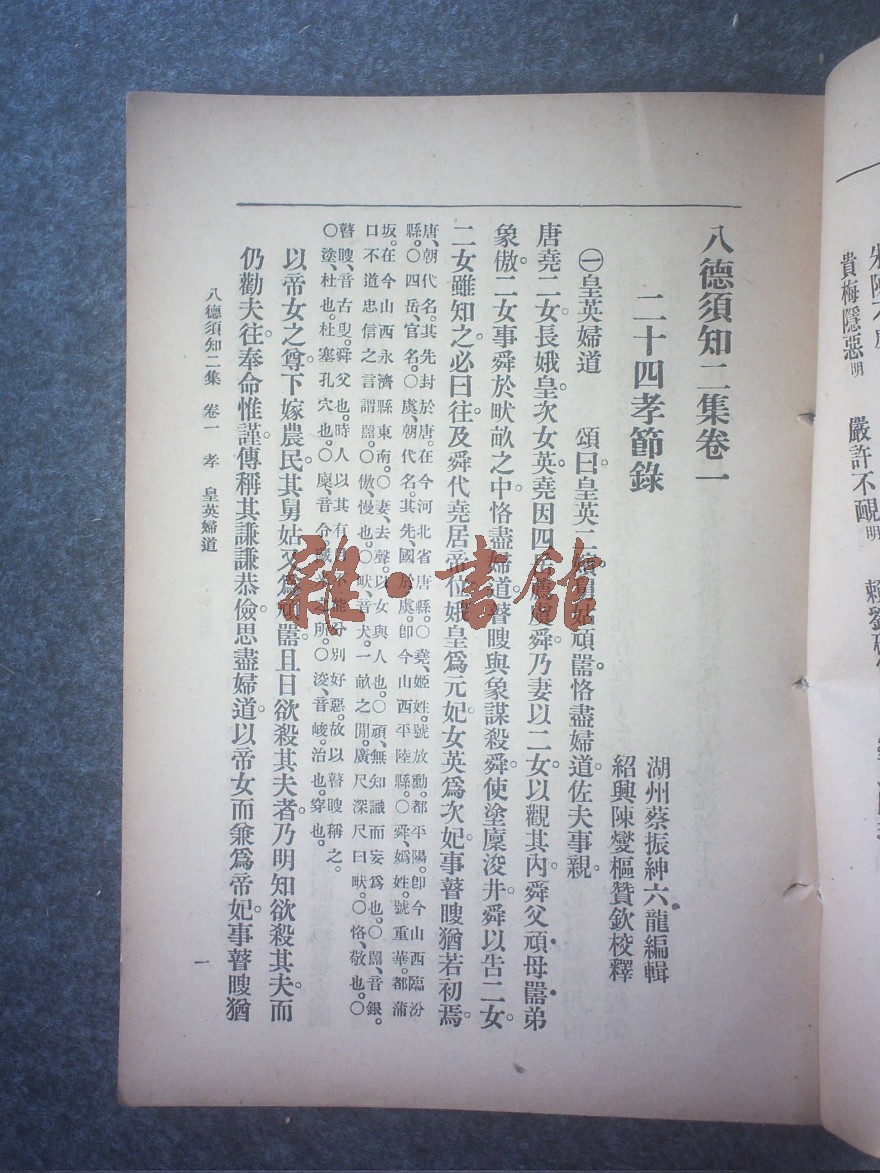 八德須知二集卷一
二十四孝節錄
湖州蔡振紳六龍編輯
紹興陳燮樞贊欽校釋
㊀皇英婦道 頌曰。皇英二嬪。舅姑頑嚚。恪盡婦道。佐夫事親。
唐堯二女。長娥皇。次女英。堯因四岳薦虞舜。乃妻以二女。以觀其內。舜父頑。母嚚。弟
象傲。二女事舜於畎畝之中。恪盡婦道。瞽瞍與象謀殺舜。使塗廩浚井。舜以告二女。
二女雖知之。必曰往。及舜代堯居帝位。娥皇爲元妃。女英爲次妃。事瞽瞍猶若初焉。
唐、朝代名。其先封於唐。在今河北省唐縣。〇堯、姬姓。號放勳。都平陽。卽今山西臨汾
縣。〇四岳、官名。〇虞、朝代名。其先、國於虞。卽今山西平陸縣。〇舜、嬀姓。號重華。都蒲
坂。在今山西永濟縣東南。〇妻、去聲。以女與人也。〇頑、無知識而妄爲也。〇嚚、音銀。
口不道忠信之言謂嚚。〇傲、慢也。〇畎、音犬。一畝之間。廣尺深尺曰畎。〇恪、敬也。〇
瞽瞍、音古叟。舜父也。時人以其有目不能分別好惡。故以瞽瞍稱之。
〇塗、杜也。杜塞孔穴也。〇廩、音令。藏米之所。〇浚、音峻。治也。穿也。
以帝女之尊。下嫁農民。其舅姑又爲頑嚚。且日欲殺其夫者。乃明知欲殺其夫。而
仍勸夫往。奉命惟謹。傳稱其謙謙恭儉。思盡婦道。以帝女而兼爲帝妃。事瞽瞍猶
八德須知二集 卷一 孝 皇英婦道
一
貴梅隱惡明 嚴許不覗明
雜·書館